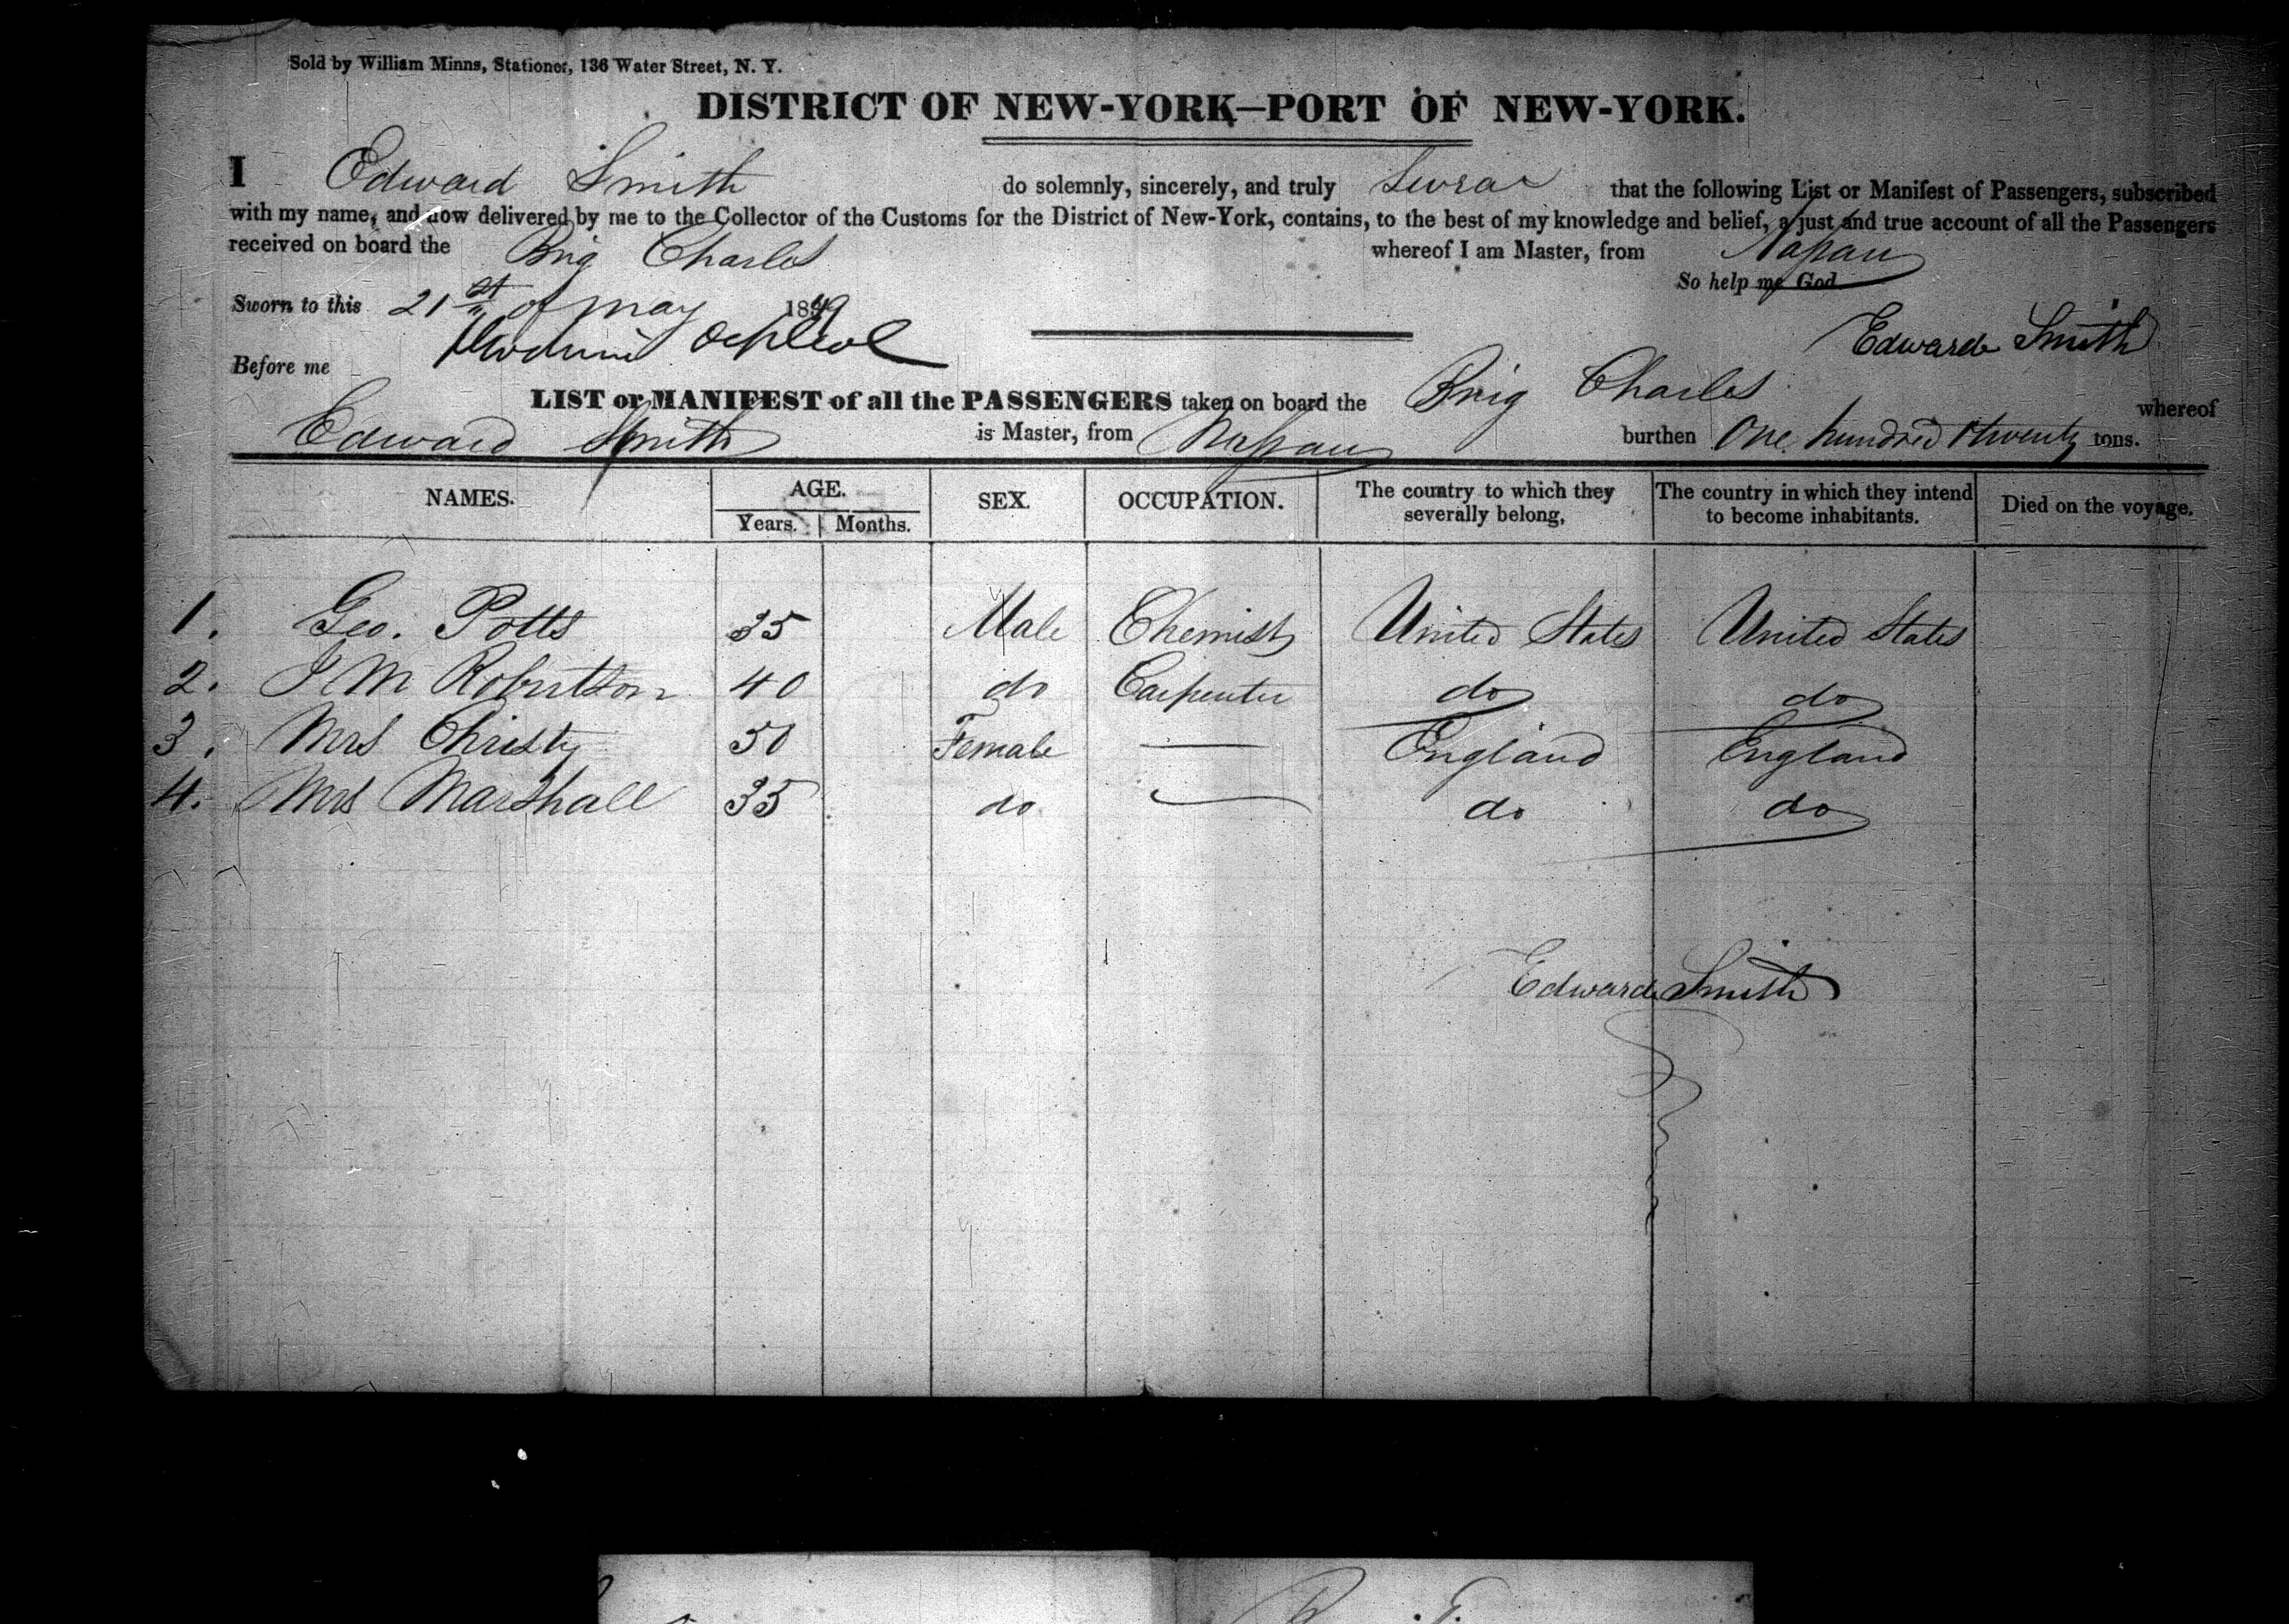 Sold by William Minns, Stationer, 136 Water Street, N. Y.
DISTRICT OF NEW-YORK—PORT OF NEW-YORK.
I Edward Smith do solemnly, sincerely, and truly Swear that the following List or Manifest of Passengers, subscribed
with my name, and now delivered by me to the Collector of the Customs for the District of New-York, contains, to the best of my knowledge and belief, a just and true account of all the Passengers
received on board the Brig Charles whereof I am Master, from Nassau
So help me God
Sworn to this 21st of may 1849
Edward Smith
Before me
LIST or MANIFEST of all the PASSENGERS taken on board the Brig Charles whereof
Edward Smith is Master, from Nassau burthen One hundred & twenty tons.
NAMES. AGE. SEX. OCCUPATION. The country to which they severally belong, The country in which they intend to become inhabitants. Died on the voyage.
Years. Months.
1. Geo. Potts 35 Male Chemist United States United States
2. J M Robertson 40 do Carpenter do do
3. Mrs Christy 50 Female — England England
4. Mrs Marshall 35 do — do do
Edward Smith